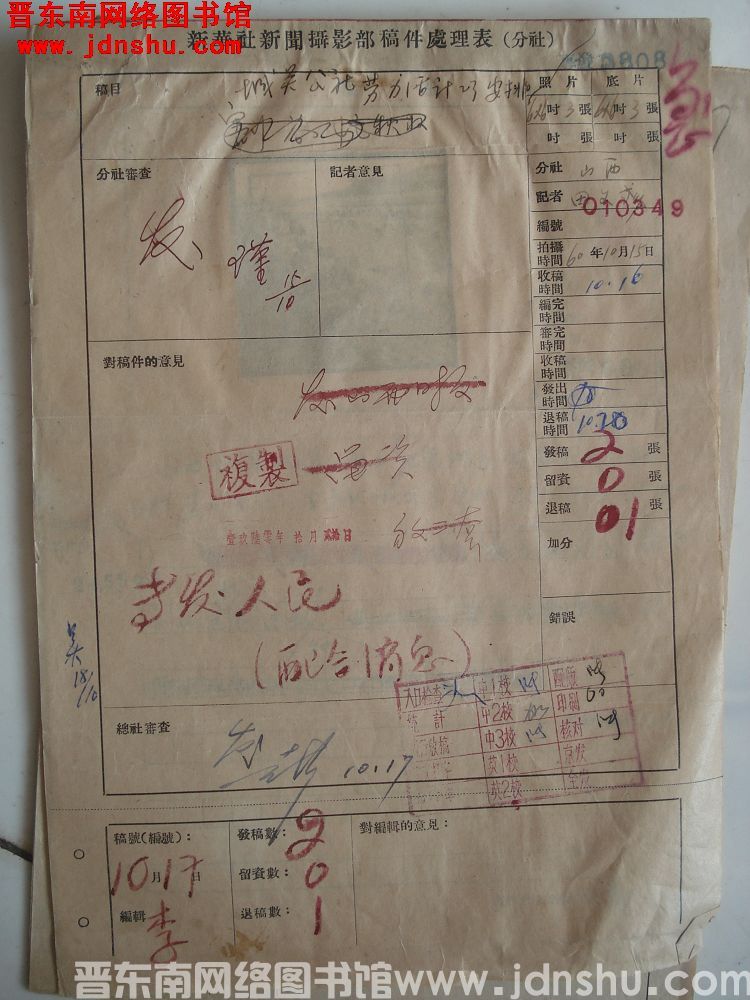 晋东南网络图书馆
www.jdnshu.com
新華社新聞攝影部稿件處理表(分社)
稿目
城关公社劳力合计巧安排
照片 底片
吋3張 吋3張
吋 張 吋 張
分社審查
发
15/10
記者意見
分社 山西
記者 田
010349
編號
拍攝時間 60年10月15日
收稿時間 10.16
編完時間
審完時間
收稿時間
發出時間
退稿時間
發稿 2 張
留資 0 張
退稿 01 張
加分
錯誤
對稿件的意見
複製
壹玖陸零年 拾月 日
专发人民
(配合消息)
吴
18/10
總社審查
发
10.17
入口检查 中1校 配嵌
统計 中2校 印制
中3校 核对
英1校 京发
英2校 全发
稿號(編號):
10月17日
編輯 李
發稿數: 2
留資數: 0
退稿數: 1
對編輯的意見:
晋东南网络图书馆www.jdnshu.com